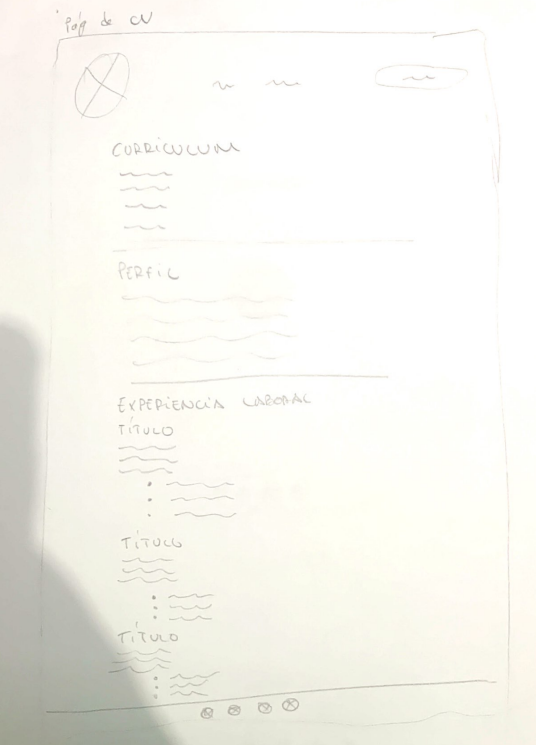 Pág de CV
CURRICULUM
PERFIL
EXPERIENCIA LABORAL
TÍTULO
TÍTULO
TÍTULO